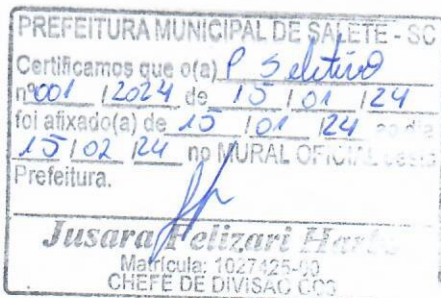 PREFEITURA MUNICIPAL DE SALETE - SC
Certificamos que o(a) P Seletivo
nº001 /2024 de 15 / 01 /24
foi afixado(a) de 15 / 01 /24 ao dia
15 / 02 /24 no MURAL OFICIAL desta
Prefeitura.
Jusara Felizari
Matrícula: 1027425-00
CHEFE DE DIVISAO CC3